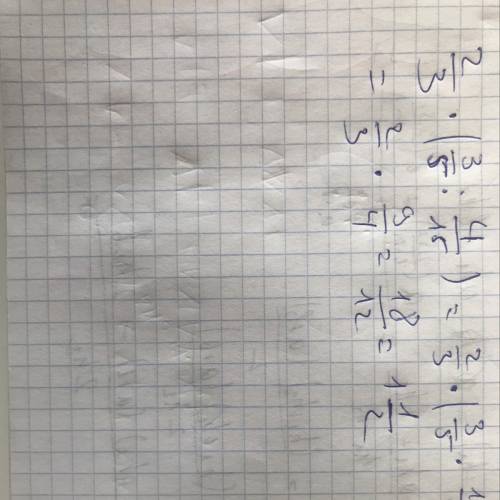 2/3 · (3/5 : 4/15) = 2/3 · (3/5 ·
= 2/3 · 9/4 = 18/12 = 1 1/2